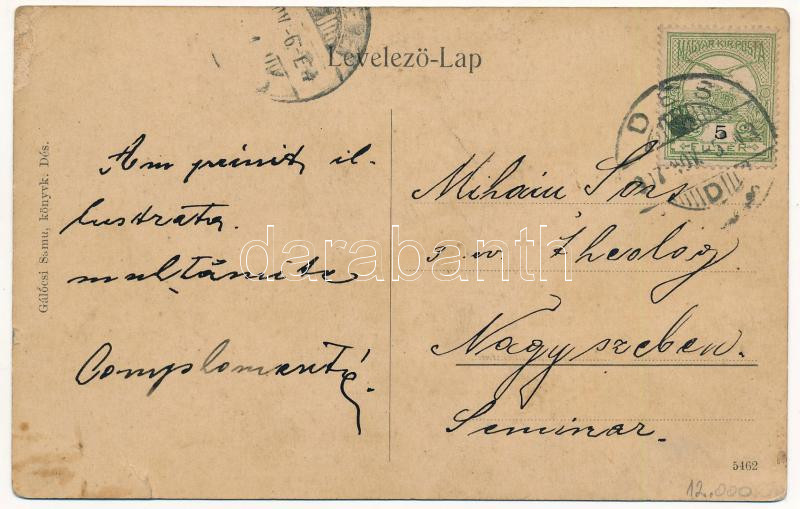 Levelezö-Lap
MAGYAR KIR. POSTA
5
FILLÉR
DÉS
Gálócsi Samu, könyvk. Dés.
Am primit il-
lustrata.
multămite
Complomente
Mihaiu Sors
3. th Theolog
Nagyszeben.
Seminar.
darabanth
5462
12.000